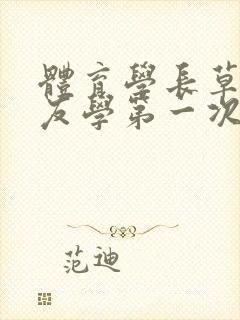 體育學長草
友學第一次
范迪